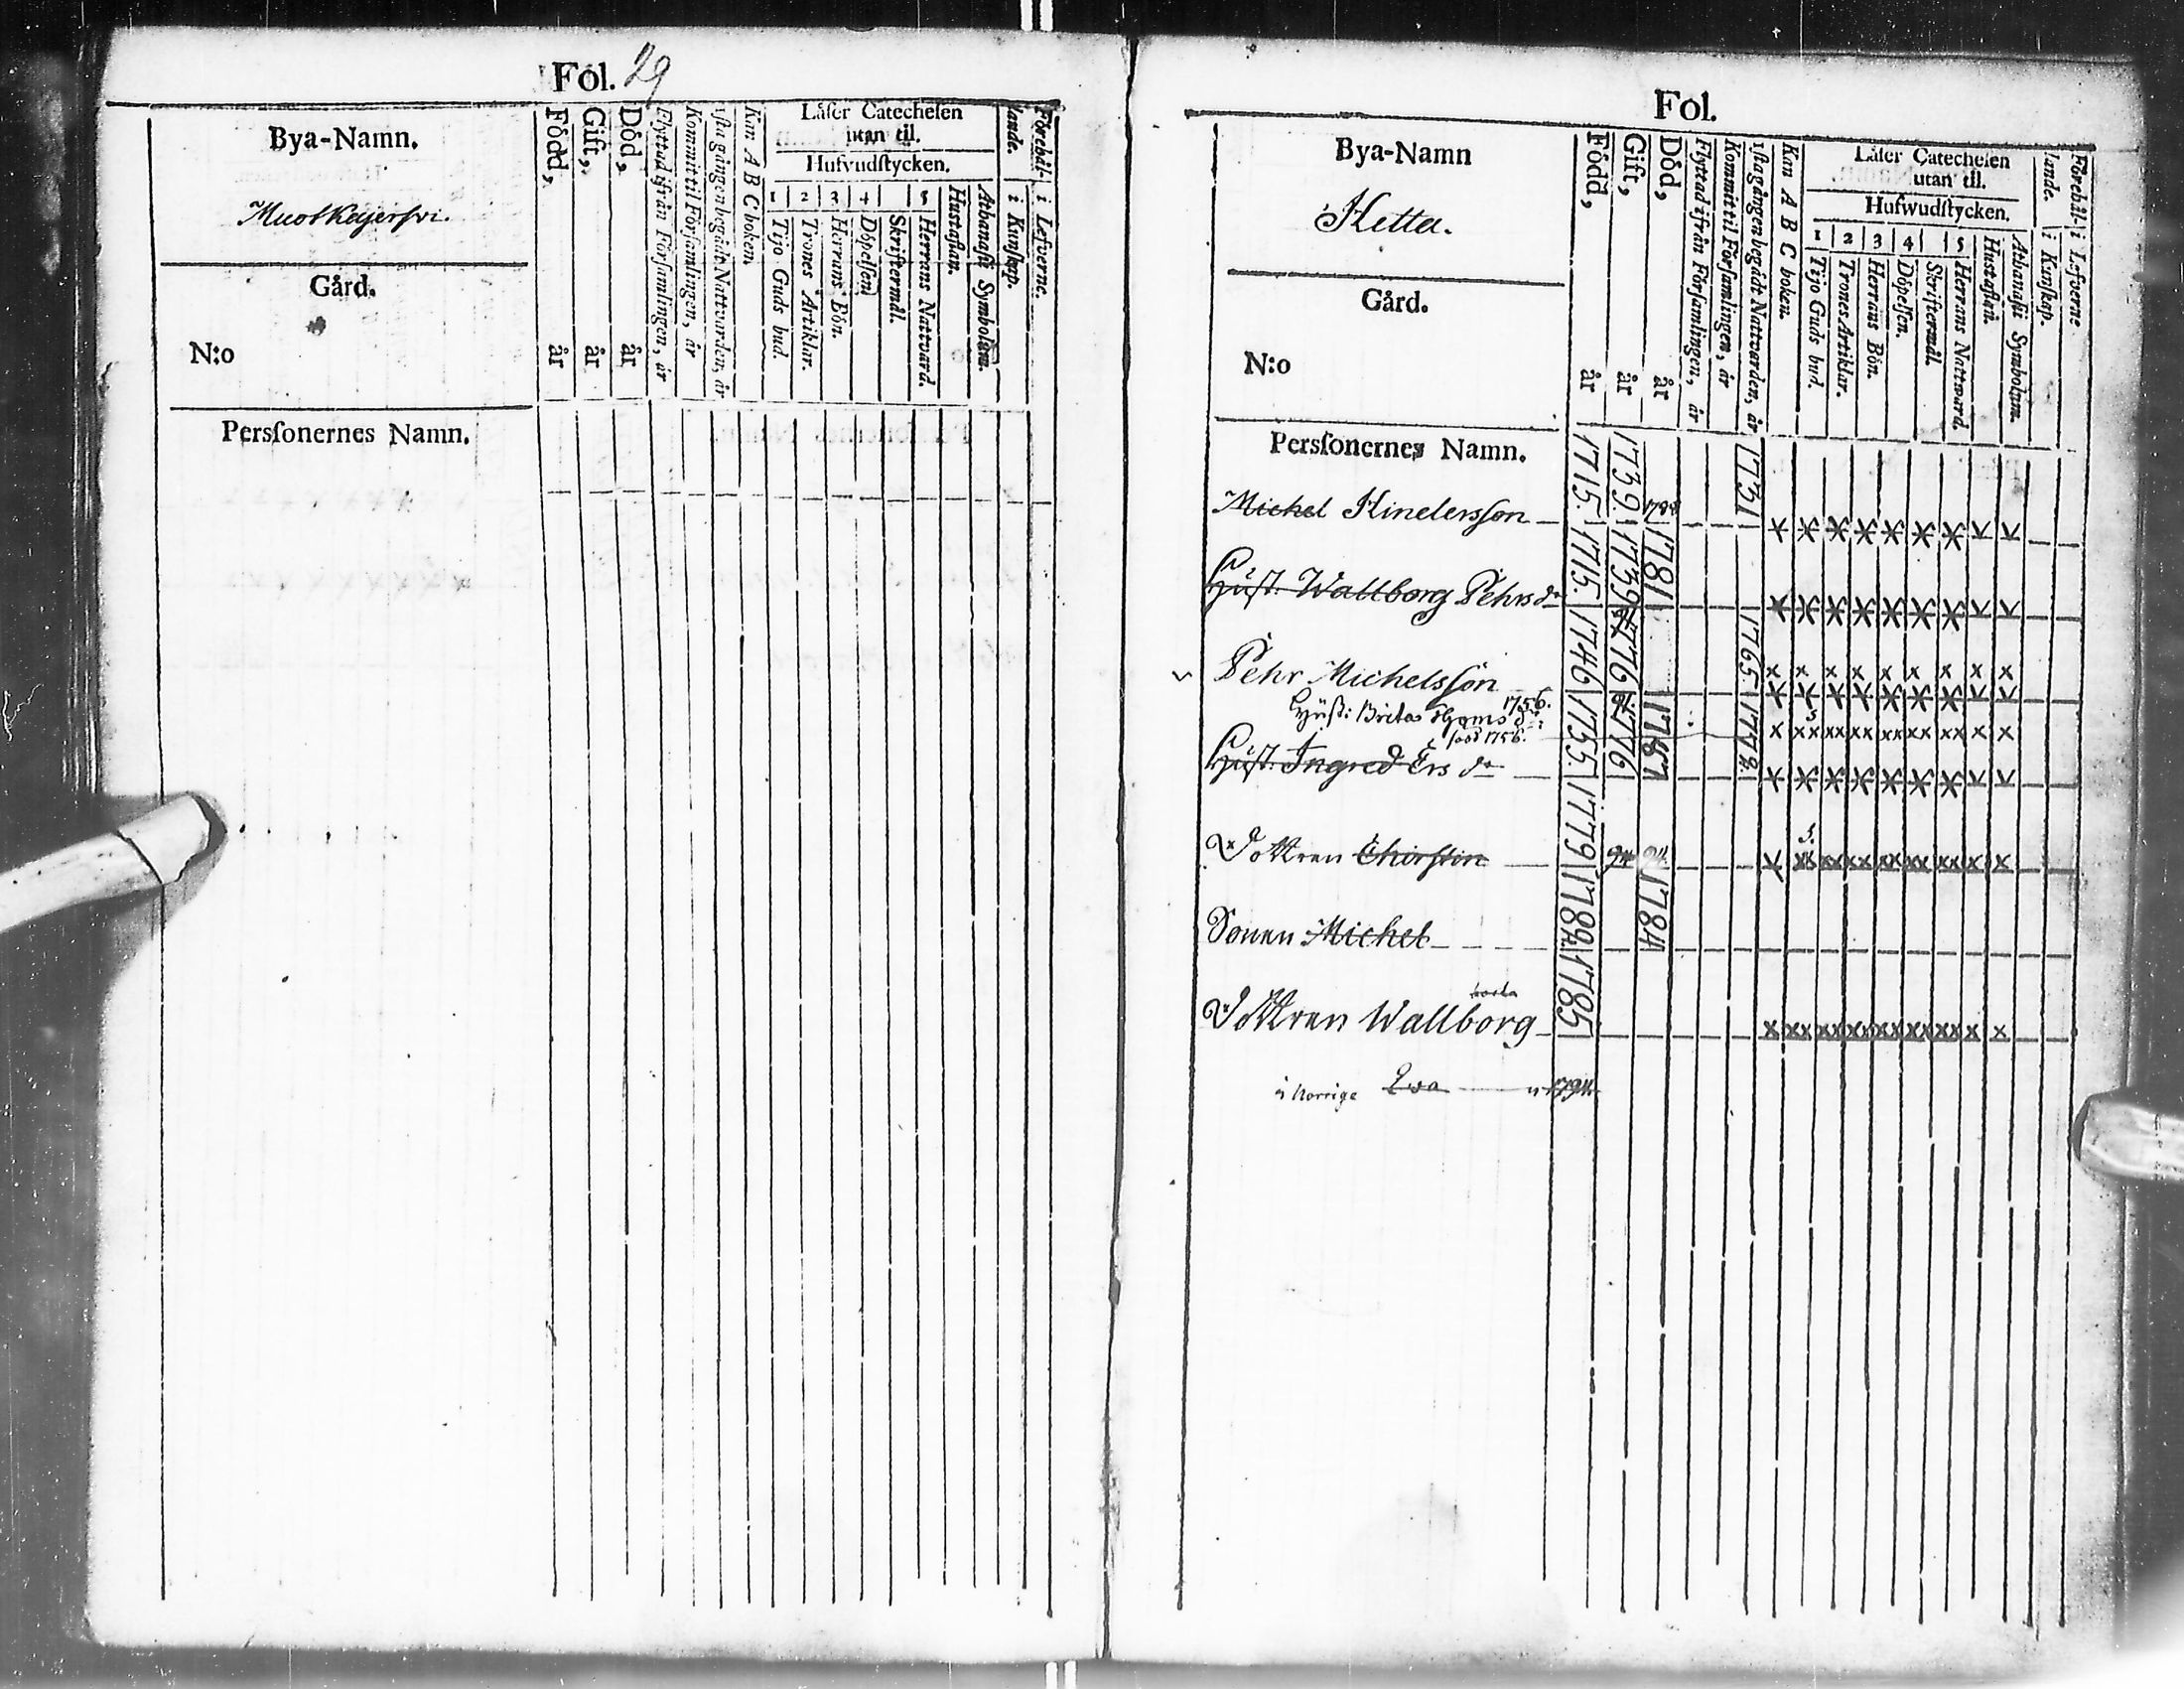 Fol. 29
Bya-Namn.
Muotkajerfwi.
Gård.
N:o
Född, år
Gift, år
Död, år
Flyttad ifrån Församlingen, år
Kommit til Församlingen, år
1sta gången begådt Nattvarden, år
Kan A B C boken.
Låser Catechesen
utan til.
Hufvudstycken.
1 2 3 4 5
Tijo Guds bud.
Trones Artiklar.
Herrans Bön.
Döpelsen
Skriftermål.
Herrans Nattvard.
Hustaflan.
Athanasii Symbolum.
Förehål-
lande.
i Kunskap.
i Lefverne.
Perssonernes Namn.
Fol.
Bya-Namn
Ketta.
Gård.
N:o
Född, år
Gift, år
Död, år
Flyttad ifrån Församlingen, år
Kommit til Församlingen, år
1sta gången begådt Nattvarden, år
Kan A B C boken.
Låser Catechesen
utan til.
Hufwudstycken.
1 2 3 4 5
Tijo Guds bud.
Trones Artiklar.
Herrans Bön.
Döpelsen.
Skriftermål.
Herrans Nattward.
Hustaflan.
Athanasii Symbolum.
Förehål-
lande.
i Kunskap.
i Lefverne
Perssonernes Namn.
Michel Hindersson 1715. 1739. 1731
Hust. Wallborg Pehrs dr 1715. 1739 1781
Pehr Michelsson 1746 1776 1765
1756.
Hust: Brita
född 1756.
Hust. Ingred Ers dr 1755. 1776 1787
Dottren Chirstin 1779
Sonen Michel 1784 1784
borta
Dottren Wallborg 1785
i Norrige Eva 1794